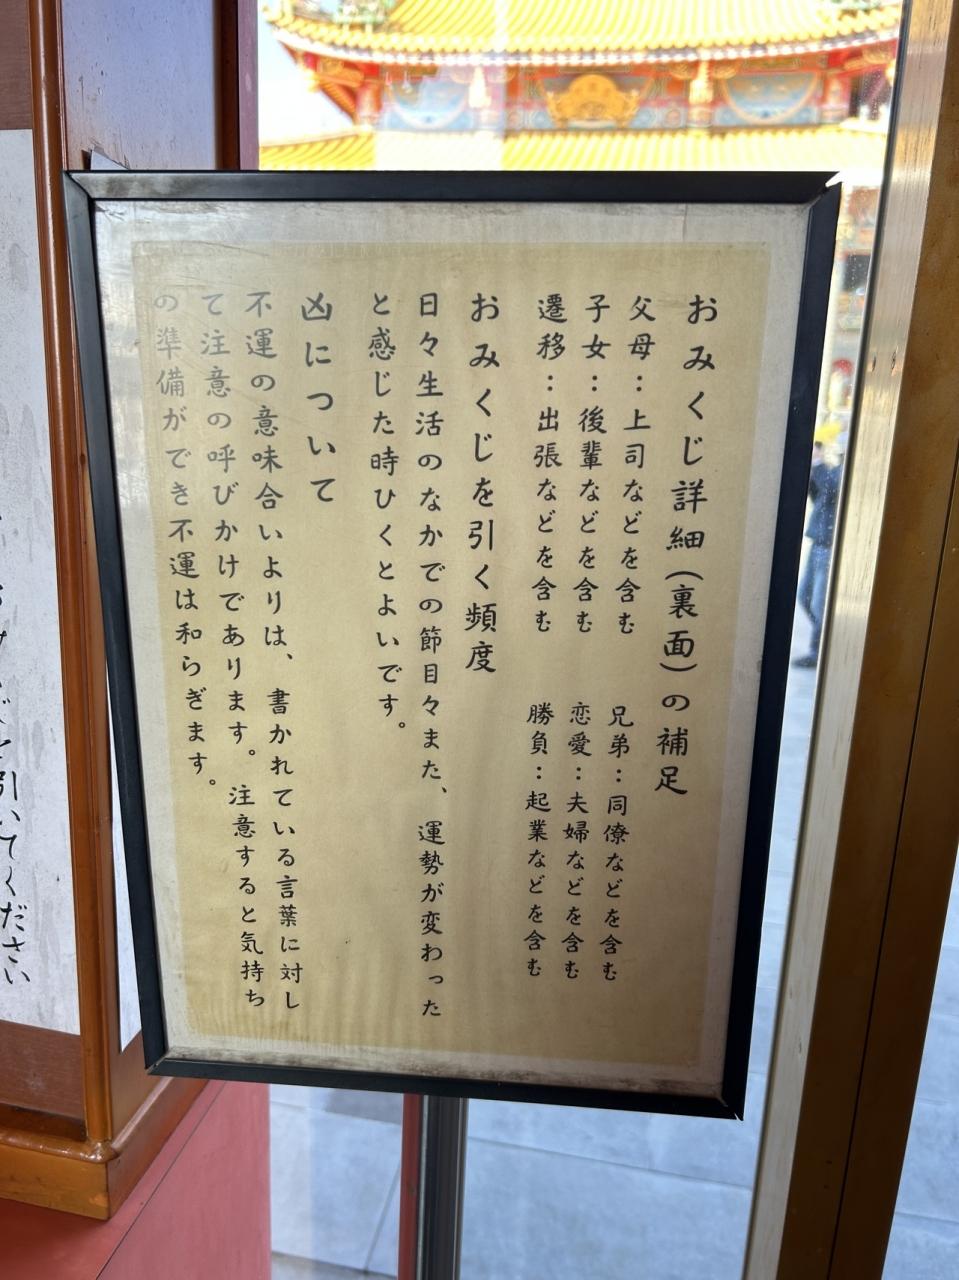 おみくじ詳細（裏面）の補足
父母：上司などを含む　兄弟：同僚などを含む
子女：後輩などを含む　恋愛：夫婦などを含む
遷移：出張などを含む　勝負：起業などを含む
おみくじを引く頻度
日々生活のなかでの節目々また、運勢が変わった
と感じた時ひくとよいです。
凶について
不運の意味合いよりは、書かれている言葉に対し
て注意の呼びかけであります。注意すると気持ち
の準備ができ不運は和らぎます。
引いてください